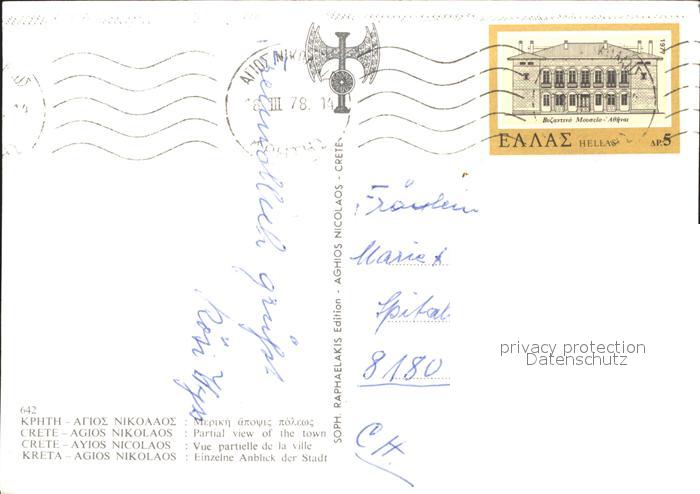 ΑΓΙΟΣ ΝΙΚΟΛ
III 78. 14
1977
Βυζαντινό Μουσείο - Ἀθῆναι
ΕΛΛΑΣ HELLAS ΔΡ.5
Freundlich grüsst
Rösi Wyss
SOPH. RAPHAELAKIS Edition - AGHIOS NICOLAOS - CRETE
Fräulein
Marie
Spital
8180
CH.
privacy protection
Datenschutz
642
ΚΡΗΤΗ – ΑΓΙΟΣ ΝΙΚΟΛΑΟΣ : Μερική ἄποψις πόλεως
CRETE – AGIOS NIKOLAOS : Partial view of the town
CRETE – AYIOS NICOLAOS : Vue partielle de la ville
KRETA – AGIOS NIKOLAOS : Einzelne Anblick der Stadt